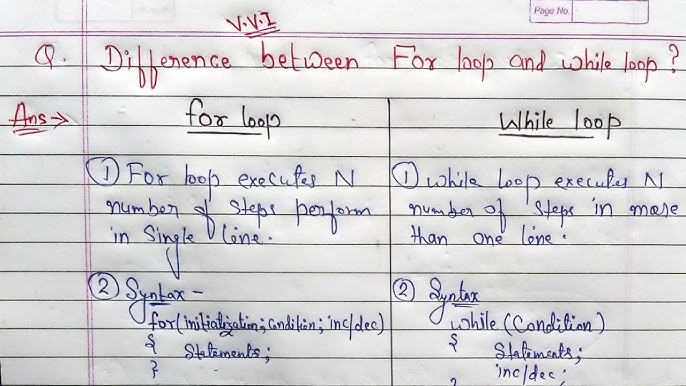 Page No.
V.V.I
Q. Difference between For loop and while loop?
Ans→ for loop While loop
① For loop executes N
number of steps perform
in Single line.
② Syntax -
for(initialization; condition; inc/dec)
{ Statements;
}
① while loop executes N
number of steps in more
than one line.
② Syntax
while (Condition)
{ Statements;
inc/dec;
}